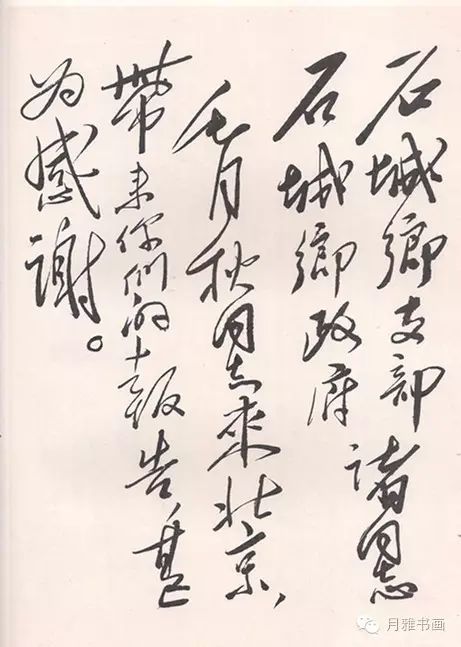 石城鄉支部
石城鄉政府諸同志
毛月秋同志來北京,
帶来你們的報告,甚
为感谢。
月雅书画